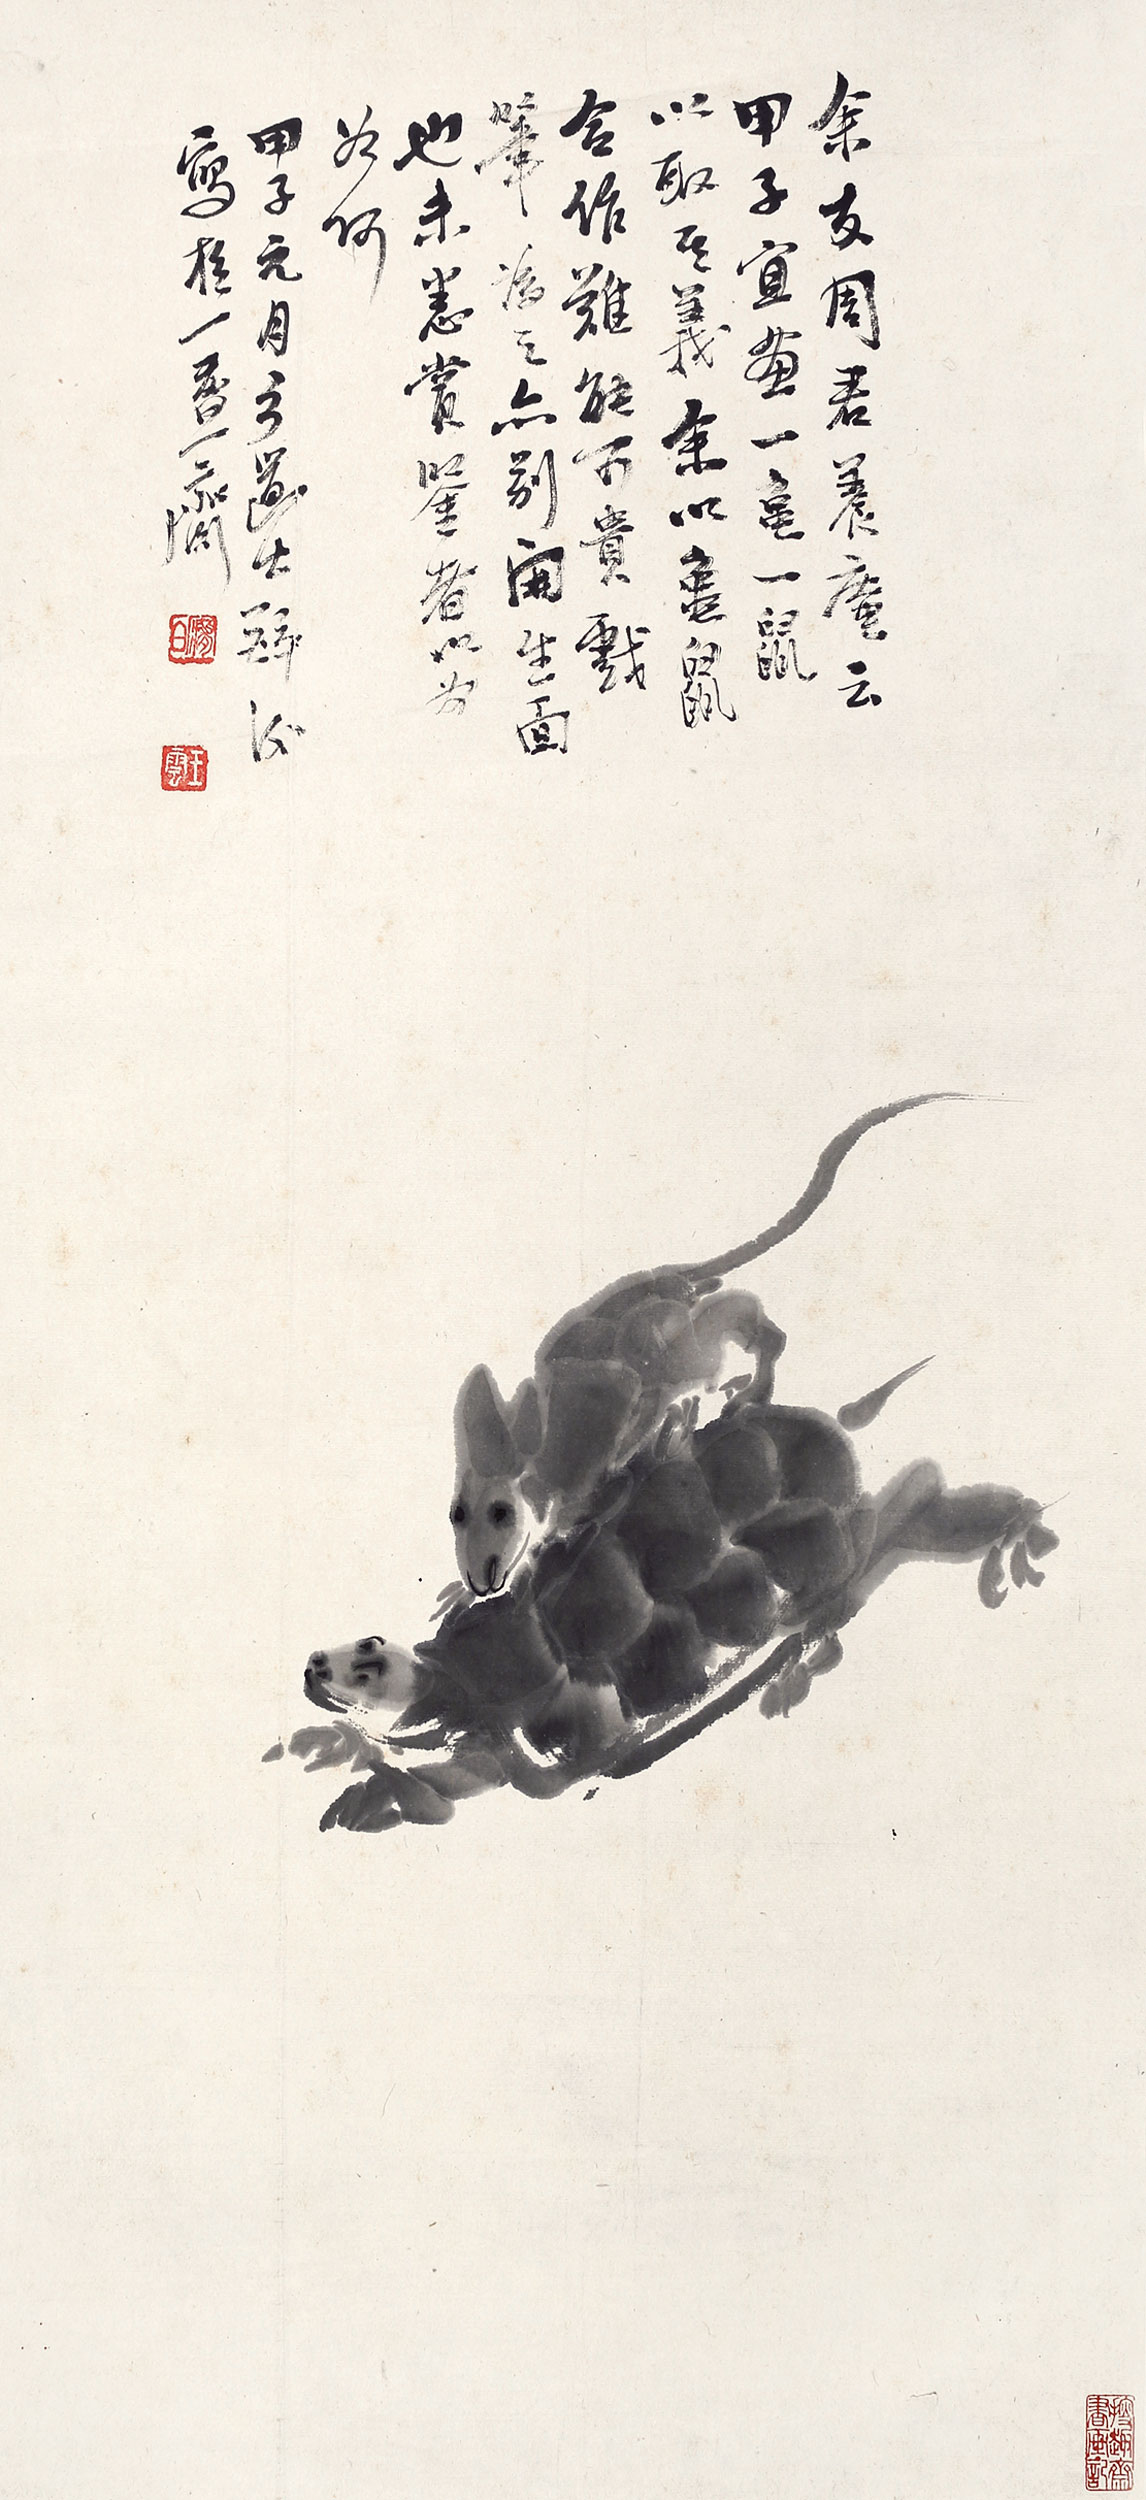 余友周君養庵云
甲子宜畫一龜一鼠
以取其義余以龜鼠
合作難能可貴戲
筆為之亦別開生面
也未悉賞鑒者以為
如何
甲子元月
寫於一香一
王雲